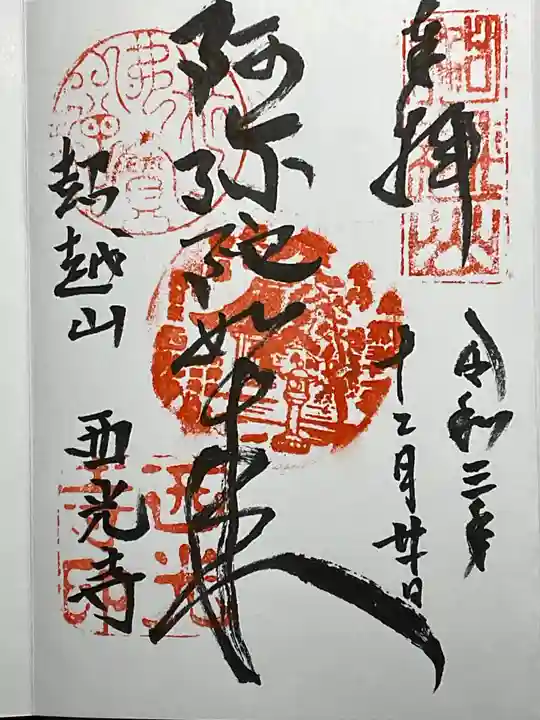 奉拝
令和三年
十二月廿日
阿弥陀如来
超越山
西光寺
西光寺印